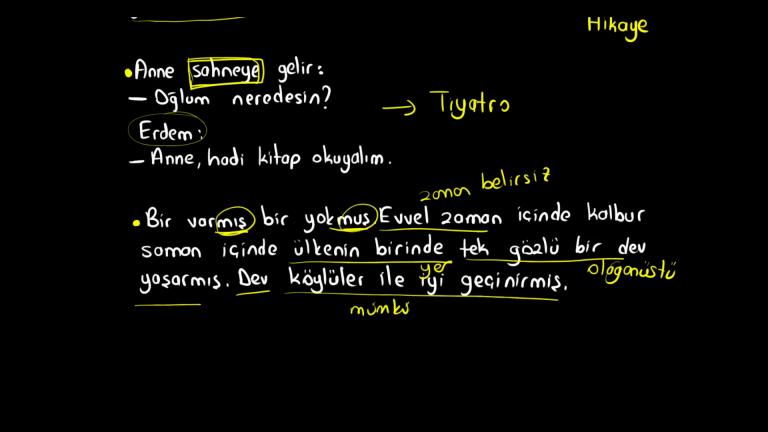 Hikaye
• Anne sahneye gelir:
— Oğlum neredesin?
→ Tiyatro
Erdem:
— Anne, hadi kitap okuyalım.
zaman belirsiz
• Bir varmış bir yokmuş Evvel zaman içinde kalbur
saman içinde ülkenin birinde tek gözlü bir dev
yer
olağanüstü
yaşarmış. Dev köylüler ile iyi geçinirmiş.
mümkü